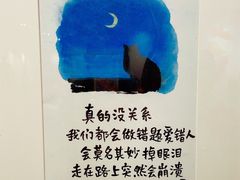 真的没关系
我们都会做错题爱错人
会莫名其妙掉眼泪
走在路上突然会崩溃